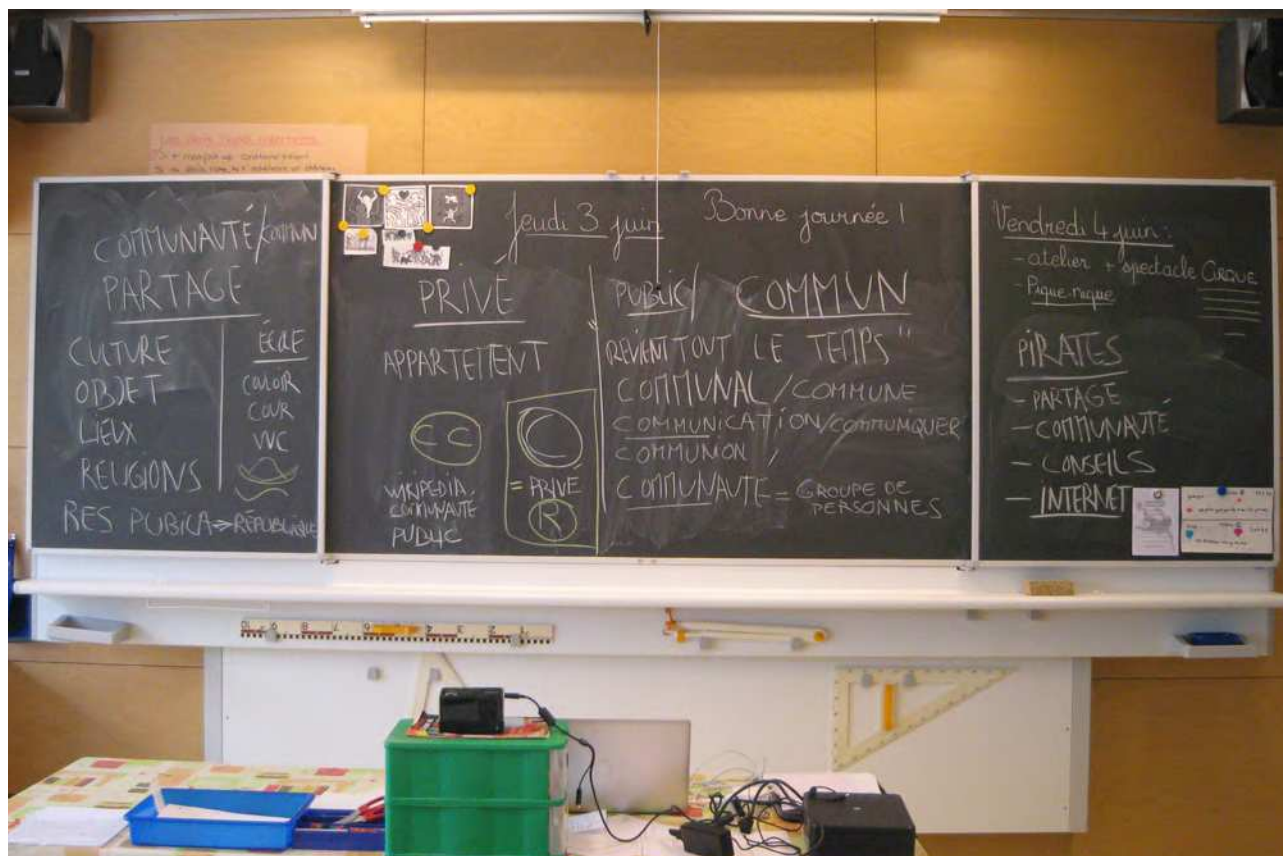 COMMUNAUTÉ/COMMUN
PARTAGE
CULTURE
OBJET
LIEUX
RELIGIONS
ÉCOLE
COULOIR
COUR
WC
RES PUBICA ⇒ RÉPUBLIQUE
Jeudi 3 juin
Bonne journée !
PRIVÉ
APPARTETIENT
CC
WIKIPEDIA.
COMMUNAUTE
PUBLIC
C
= PRIVÉ
R
PUBLIC/ COMMUN
"REVIENT TOUT LE TEMPS"
COMMUNAL / COMMUNE
COMMUNICATION/COMMUNIQUER
COMMUNION,
COMMUNAUTE = GROUPE DE
PERSONNES
Vendredi 4 juin :
- atelier + spectacle CIRQUE
- Pique-nique
PIRATES
- PARTAGE
- COMMUNAUTÉ
- CONSEILS
- INTERNET
10 9 8 7 6 5 4 3 2 1